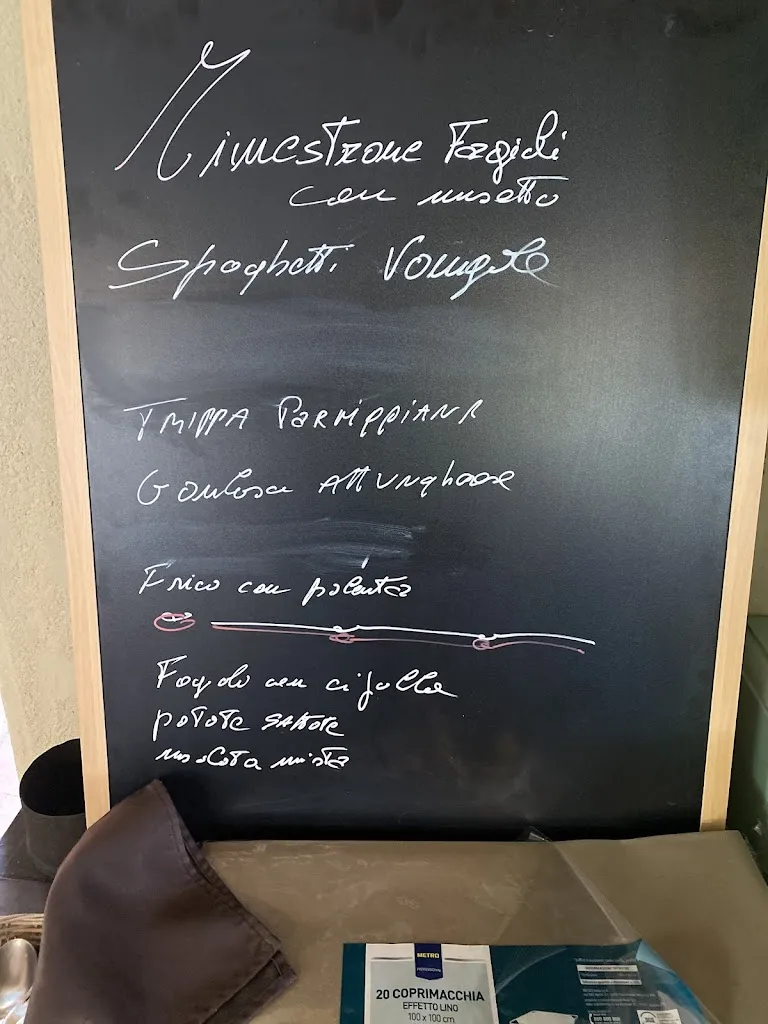 Minestrone Fagioli
con musetto
Spaghetti Vongole
TRIPPA PARMIGGIANA
Goulasch All Ungherese
Frico con polenta
Fagioli con cipolla
patate saltate
insalata mista
METRO
PROFESSIONAL
20 COPRIMACCHIA
EFFETTO LINO
100 x 100 cm